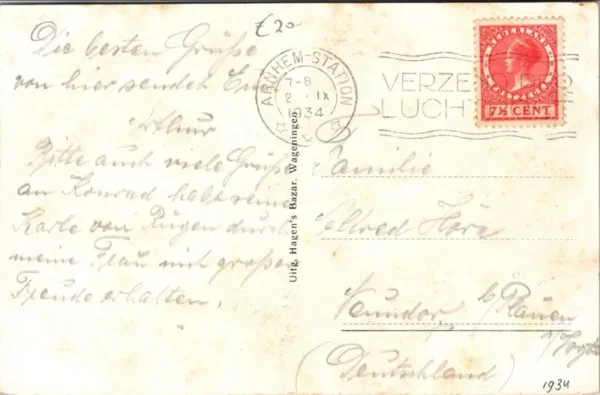 £20
Die besten Grüße
von hier sendet Euch
Arthur
Bitte auch viele Grüße
an Konrad habe seine
Karte von Rügen durch
meine Frau mit großer
Freude erhalten.
Uitg. Hagen's Bazar. Wageningen
ARNHEM-STATION
7-8
2 IX
1934
VERZE
LUCHT
NEDERLAND
7½ CENT
Familie
Alfred Horn
Neundorf b/Plauen
i/Vogtl
(Deutschland)
1934